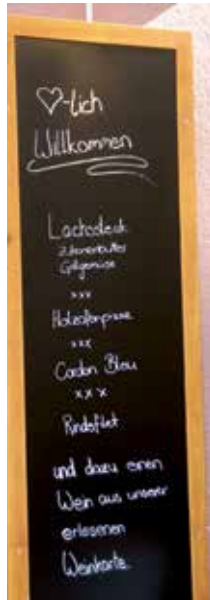 ♡-lich
Willkommen
Lachssteak
Zitronenbutter
Grillgemüse
xxx
Holzofenpizza
xxx
Cordon Bleu
xxx
Rindsfilet
und dazu einen
Wein aus unserer
erlesenen
Weinkarte.